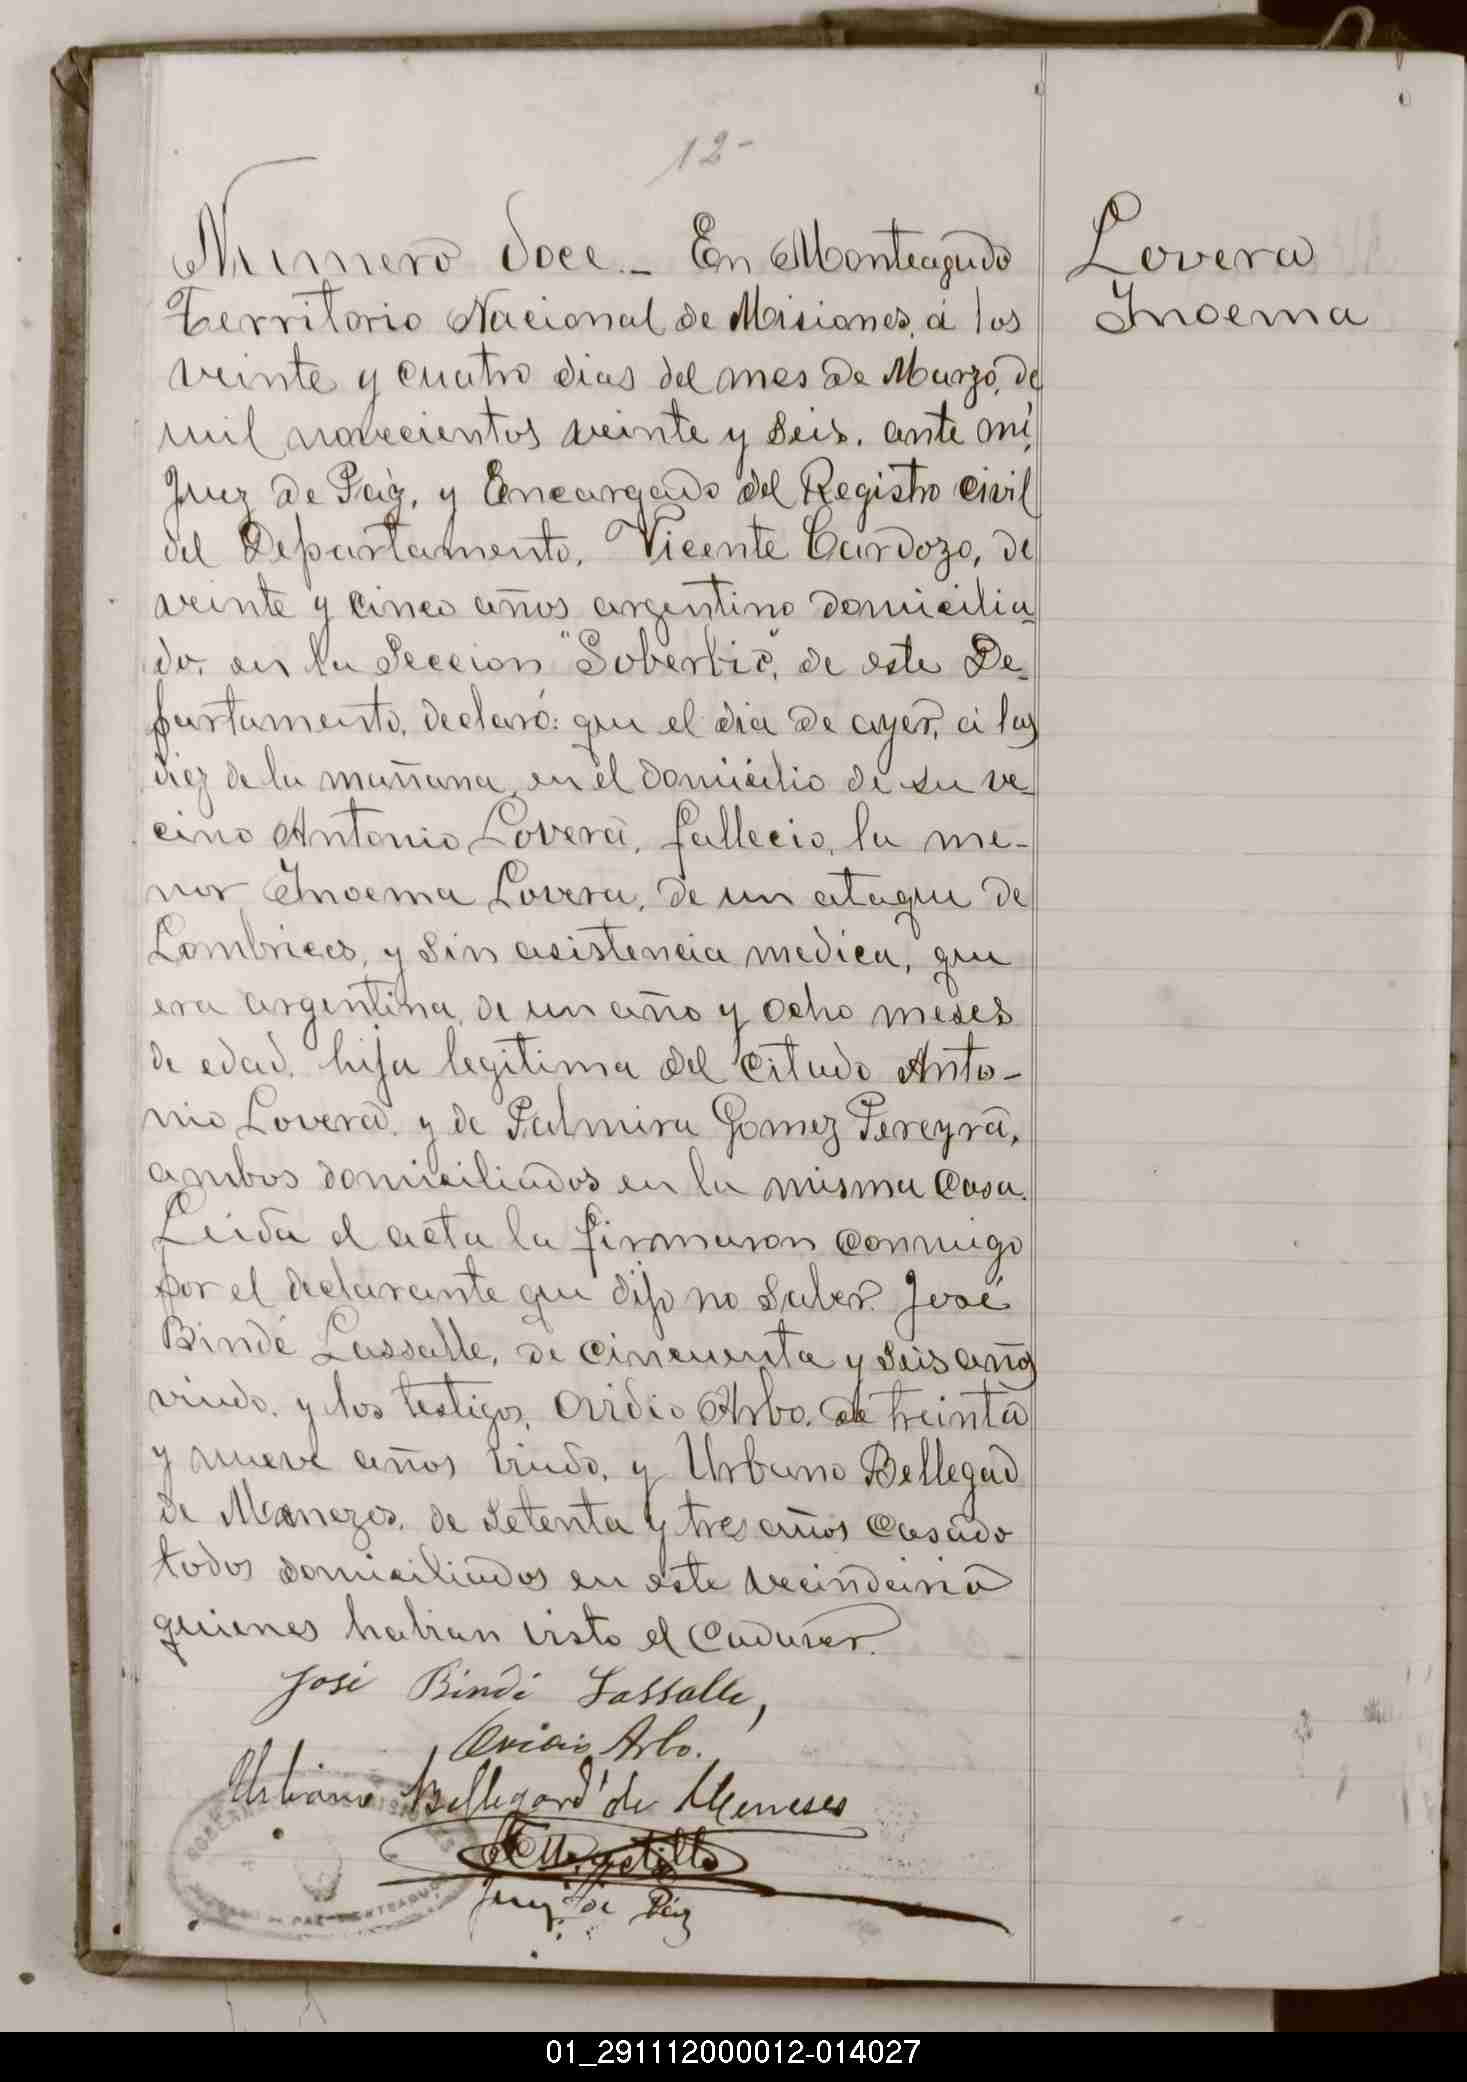 12-
Numero doce._ En Monteagudo
Territorio Nacional de Misiones, á los
veinte y cuatro dias del mes de Marzo, de
mil novecientos veinte y seis. ante mi,
Juez de Paz, y Encargado del Registro civil
del Departamento, Vicente Cardozo, de
veinte y cinco años argentino domicilia_
do, en la Seccion "Soberbio", de este De_
partamento, declaró: que el dia de ayer, á las
diez de la mañana, en el domicilio de su ve_
cino Antonio Lovera, fallecio, la me-
nor Inoema Lovera, de un ataque de
Lombrices, y sin asistencia medica, que
era argentina, de un año y ocho meses
de edad, hija legitima del citado Anto-
nio Lovera, y de Palmira Gomez Pereyra,
ambos domiciliados en la misma Casa.
Leida el acta la firmaron conmigo
por el declarante que dijo no saber. José
Bindé Lassalle, de cincuenta y seis años
viudo, y los testigos, Ovidio Arbo, de treinta
y nueve años viudo, y Urbano Bellegad
de Menezes, de setenta y tres años casado
todos domiciliados en este vecindario
quienes habian visto el cadaver.
José Bindé Lassalle,
Ovidio Arbo.
Urbano Bellegard de Meneses
Juez de Paz
Lovera
Inoema
01_291112000012-014027